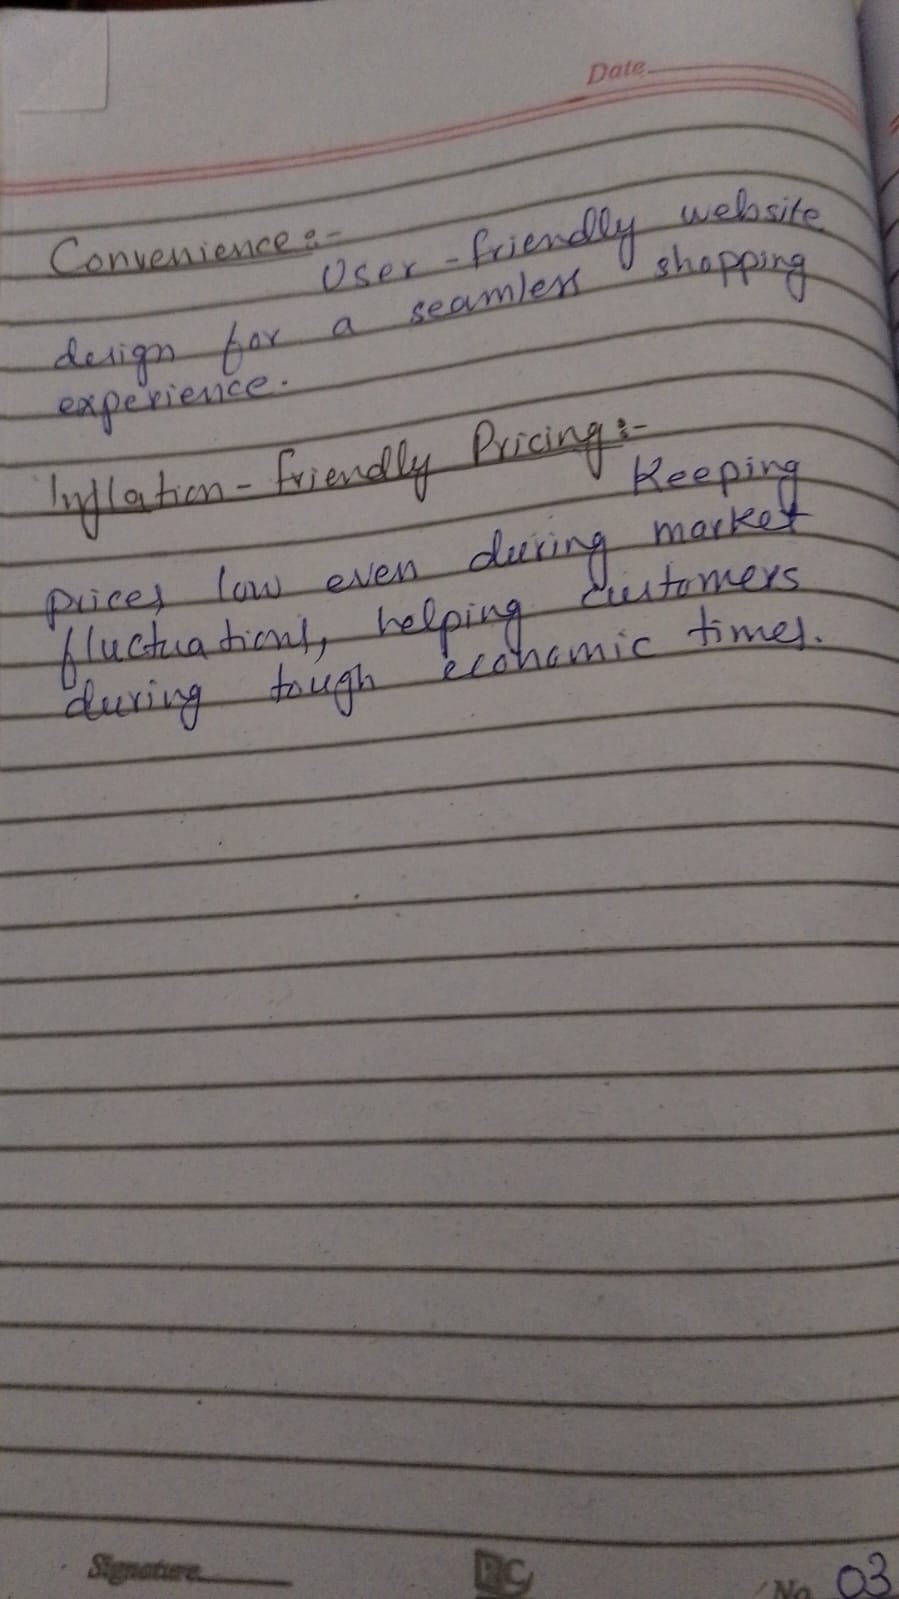 Date
Convenience :-
User-friendly website
design for a seamless shopping
experience.
Inflation-friendly Pricing :-
Keeping
prices low even during market
fluctuations, helping customers
during tough economic times.
Signature
No 03